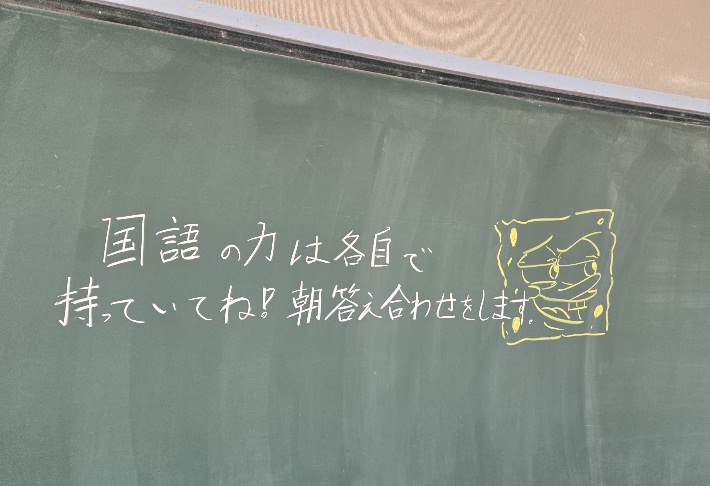 国語の力は各自で
持っていてね！朝答え合わせをします。